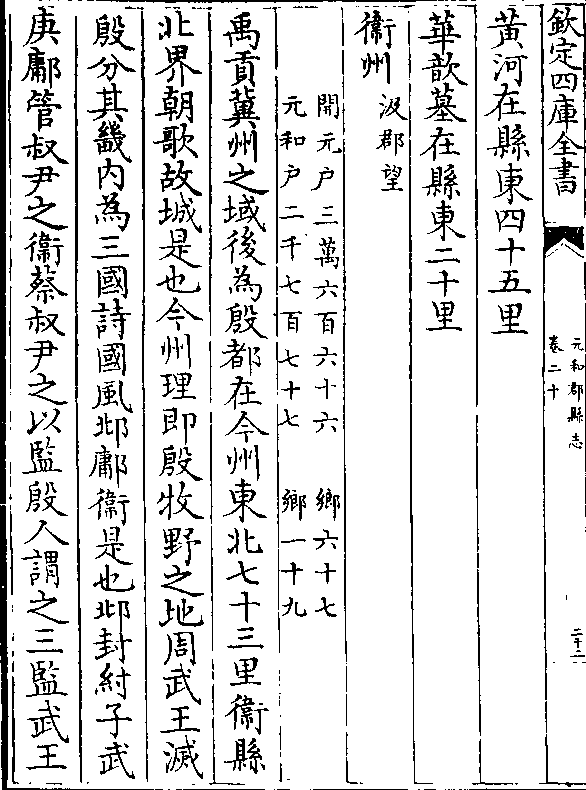 欽定四庫全書
元和郡縣志
卷二十
二十二
黃河在縣東四十五里
華歆墓在縣東二十里
衞州
汲郡望
開元户三萬六百六十六 鄉六十七
元和户二千七百七十七 鄉一十九
禹貢冀州之域後為殷都在今州東北七十三里衞縣
北界朝歌故城是也今州理即殷牧野之地周武王滅
殷分其畿内為三國詩國風邶鄘衞是也邶封紂子武
庚鄘管叔尹之衞蔡叔尹之以監殷人謂之三監武王